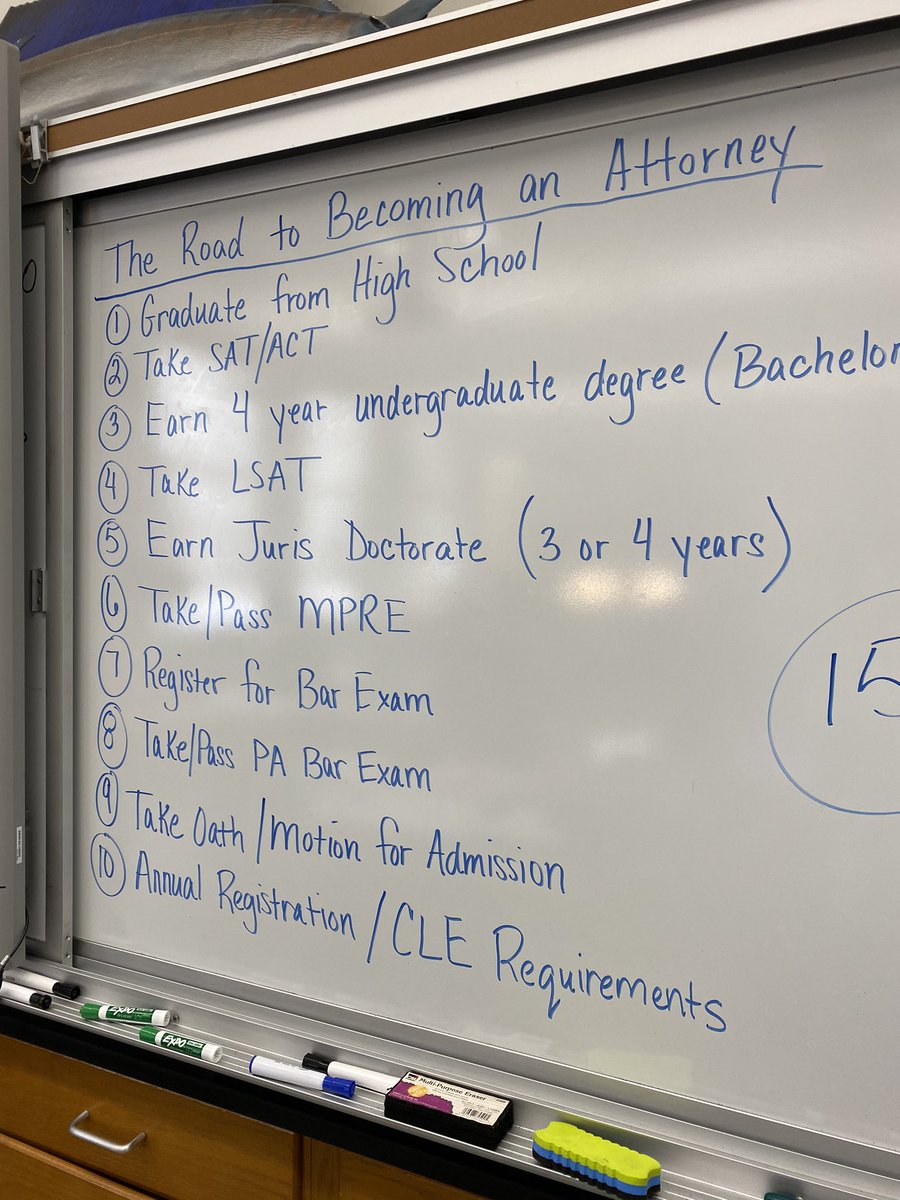 The Road to Becoming an Attorney
① Graduate from High School
② Take SAT/ACT
③ Earn 4 year undergraduate degree (Bachelor
④ Take LSAT
⑤ Earn Juris Doctorate (3 or 4 years)
⑥ Take/Pass MPRE
⑦ Register for Bar Exam
⑧ Take/Pass PA Bar Exam
⑨ Take Oath/Motion for Admission
⑩ Annual Registration/CLE Requirements
15
EXPO
EXPO
Multi-Purpose Eraser